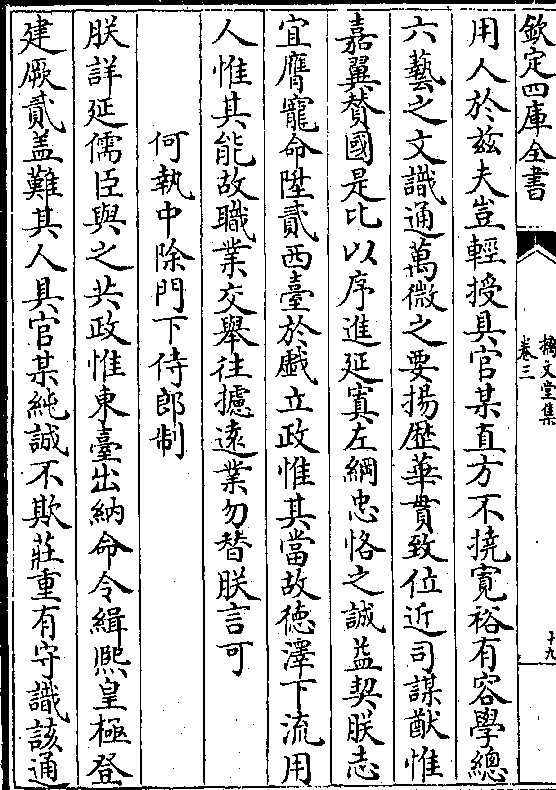 欽定四庫全書
摛文堂集
卷三
十九
用人於兹夫豈輕授具官某直方不撓寛裕有容學總
六藝之文識通萬微之要揚歴華貫致位近司謀猷惟
嘉翼賛國是比以序進延寘左綱忠恪之誠益契朕志
宜膺寵命陞貳西臺於戲立政惟其當故徳澤下流用
人惟其能故職業交舉往攄逺業勿替朕言可
何執中除門下侍郎制
朕詳延儒臣與之共政惟東臺出納命令緝熙皇極登
建厥貳盖難其人具官某純誠不欺莊重有守識該通